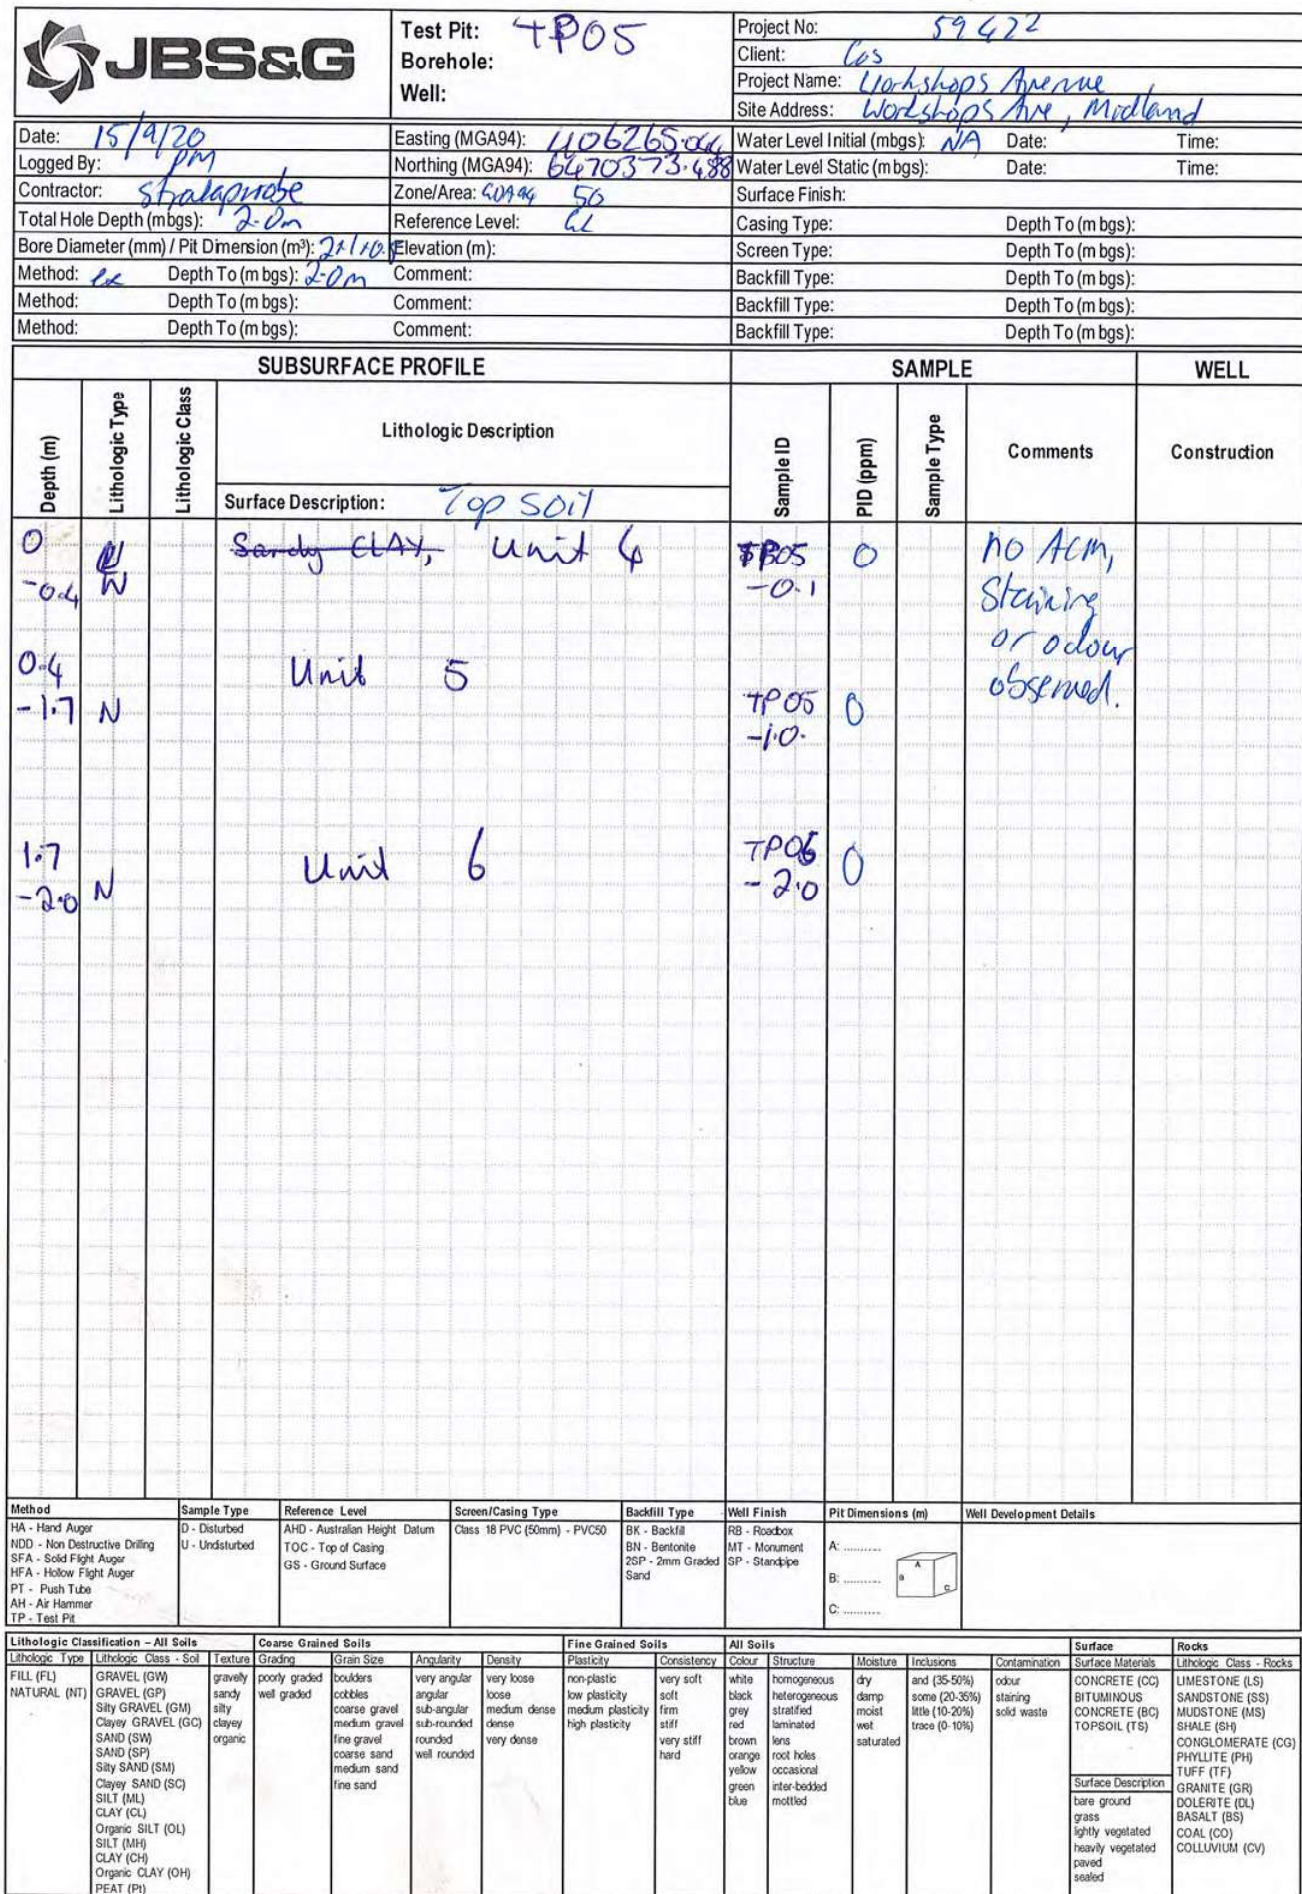 JBS&G
Test Pit: TP05
Borehole:
Well:
Project No: 59422
Client: CoS
Project Name: Workshops Avenue
Site Address: Workshops Ave, Midland
Date: 15/9/20
Logged By: PM
Contractor: Strataprobe
Total Hole Depth (mbgs): 2.0m
Bore Diameter (mm) / Pit Dimension (m³):
Method: ex Depth To (m bgs): 2.0m
Method: Depth To (m bgs):
Method: Depth To (m bgs):
Easting (MGA94):
Northing (MGA94): 6470373.488
Zone/Area: GDA94 50
Reference Level: GL
Elevation (m):
Comment:
Comment:
Comment:
Water Level Initial (mbgs): NA Date: Time:
Water Level Static (mbgs): Date: Time:
Surface Finish:
Casing Type: Depth To (m bgs):
Screen Type: Depth To (m bgs):
Backfill Type: Depth To (m bgs):
Backfill Type: Depth To (m bgs):
Backfill Type: Depth To (m bgs):
SUBSURFACE PROFILE SAMPLE WELL
Depth (m)
Lithologic Type
Lithologic Class
Lithologic Description
Surface Description: Top Soil
Sample ID
PID (ppm)
Sample Type
Comments
Construction
0 Sandy CLAY, Unit 4 TP05 0 no ACM,
-0.4 N -0.1 Staining
or odour
0.4 Unit 5 observed.
-1.7 N TP05 0
-1.0.
1.7 Unit 6 TP06 0
-2.0 N -2.0
Method
HA - Hand Auger
NDD - Non Destructive Drilling
SFA - Solid Flight Auger
HFA - Hollow Flight Auger
PT - Push Tube
AH - Air Hammer
TP - Test Pit
Sample Type
D - Disturbed
U - Undisturbed
Reference Level
AHD - Australian Height Datum
TOC - Top of Casing
GS - Ground Surface
Screen/Casing Type
Class 18 PVC (50mm) - PVC50
Backfill Type
BK - Backfill
BN - Bentonite
2SP - 2mm Graded
Sand
Well Finish
RB - Roadbox
MT - Monument
SP - Standpipe
Pit Dimensions (m)
A: ..........
B: ..........
C: ..........
A
B
C
Well Development Details
Lithologic Classification – All Soils
Lithologic Type
FILL (FL)
NATURAL (NT)
Lithologic Class - Soil
GRAVEL (GW)
GRAVEL (GP)
Silty GRAVEL (GM)
Clayey GRAVEL (GC)
SAND (SW)
SAND (SP)
Silty SAND (SM)
Clayey SAND (SC)
SILT (ML)
CLAY (CL)
Organic SILT (OL)
SILT (MH)
CLAY (CH)
Organic CLAY (OH)
PEAT (Pt)
Texture
gravelly
sandy
silty
clayey
organic
Coarse Grained Soils
Grading
poorly graded
well graded
Grain Size
boulders
cobbles
coarse gravel
medium gravel
fine gravel
coarse sand
medium sand
fine sand
Angularity
very angular
angular
sub-angular
sub-rounded
rounded
well rounded
Density
very loose
loose
medium dense
dense
very dense
Fine Grained Soils
Plasticity
non-plastic
low plasticity
medium plasticity
high plasticity
Consistency
very soft
soft
firm
stiff
very stiff
hard
All Soils
Colour
white
black
grey
red
brown
orange
yellow
green
blue
Structure
homogeneous
heterogeneous
stratified
laminated
lens
root holes
occasional
inter-bedded
mottled
Moisture
dry
damp
moist
wet
saturated
Inclusions
and (35-50%)
some (20-35%)
little (10-20%)
trace (0-10%)
Contamination
odour
staining
solid waste
Surface
Surface Materials
CONCRETE (CC)
BITUMINOUS
CONCRETE (BC)
TOPSOIL (TS)
Surface Description
bare ground
grass
lightly vegetated
heavily vegetated
paved
sealed
Rocks
Lithologic Class - Rocks
LIMESTONE (LS)
SANDSTONE (SS)
MUDSTONE (MS)
SHALE (SH)
CONGLOMERATE (CG)
PHYLLITE (PH)
TUFF (TF)
GRANITE (GR)
DOLERITE (DL)
BASALT (BS)
COAL (CO)
COLLUVIUM (CV)